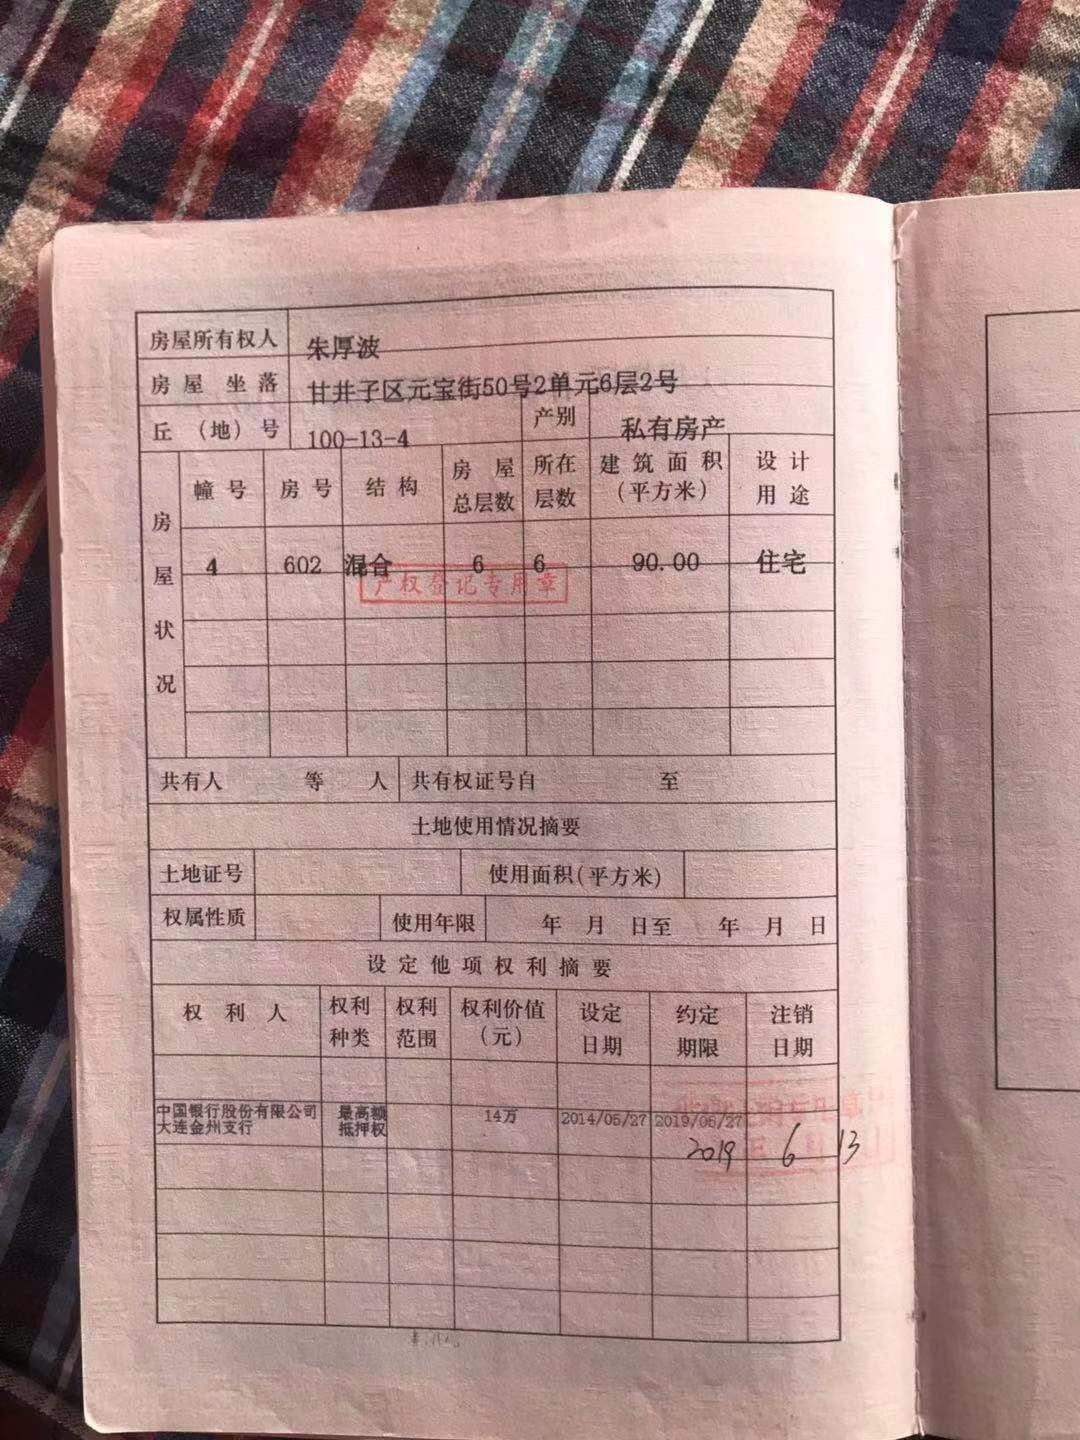 房屋所有权人 朱厚波
房屋坐落 甘井子区元宝街50号2单元6层2号
丘（地）号 100-13-4 产别 私有房产
房屋状况
幢号 房号 结构 房屋总层数 所在层数 建筑面积（平方米） 设计用途
4 602 混合 6 6 90.00 住宅
产权登记专用章
共有人 等 人 共有权证号自 至
土地使用情况摘要
土地证号 使用面积(平方米)
权属性质 使用年限 年 月 日至 年 月 日
设定他项权利摘要
权利人 权利种类 权利范围 权利价值（元） 设定日期 约定期限 注销日期
中国银行股份有限公司 最高额 14万 2014/05/27 2019/05/27
大连金州支行 抵押权
2019 6 13